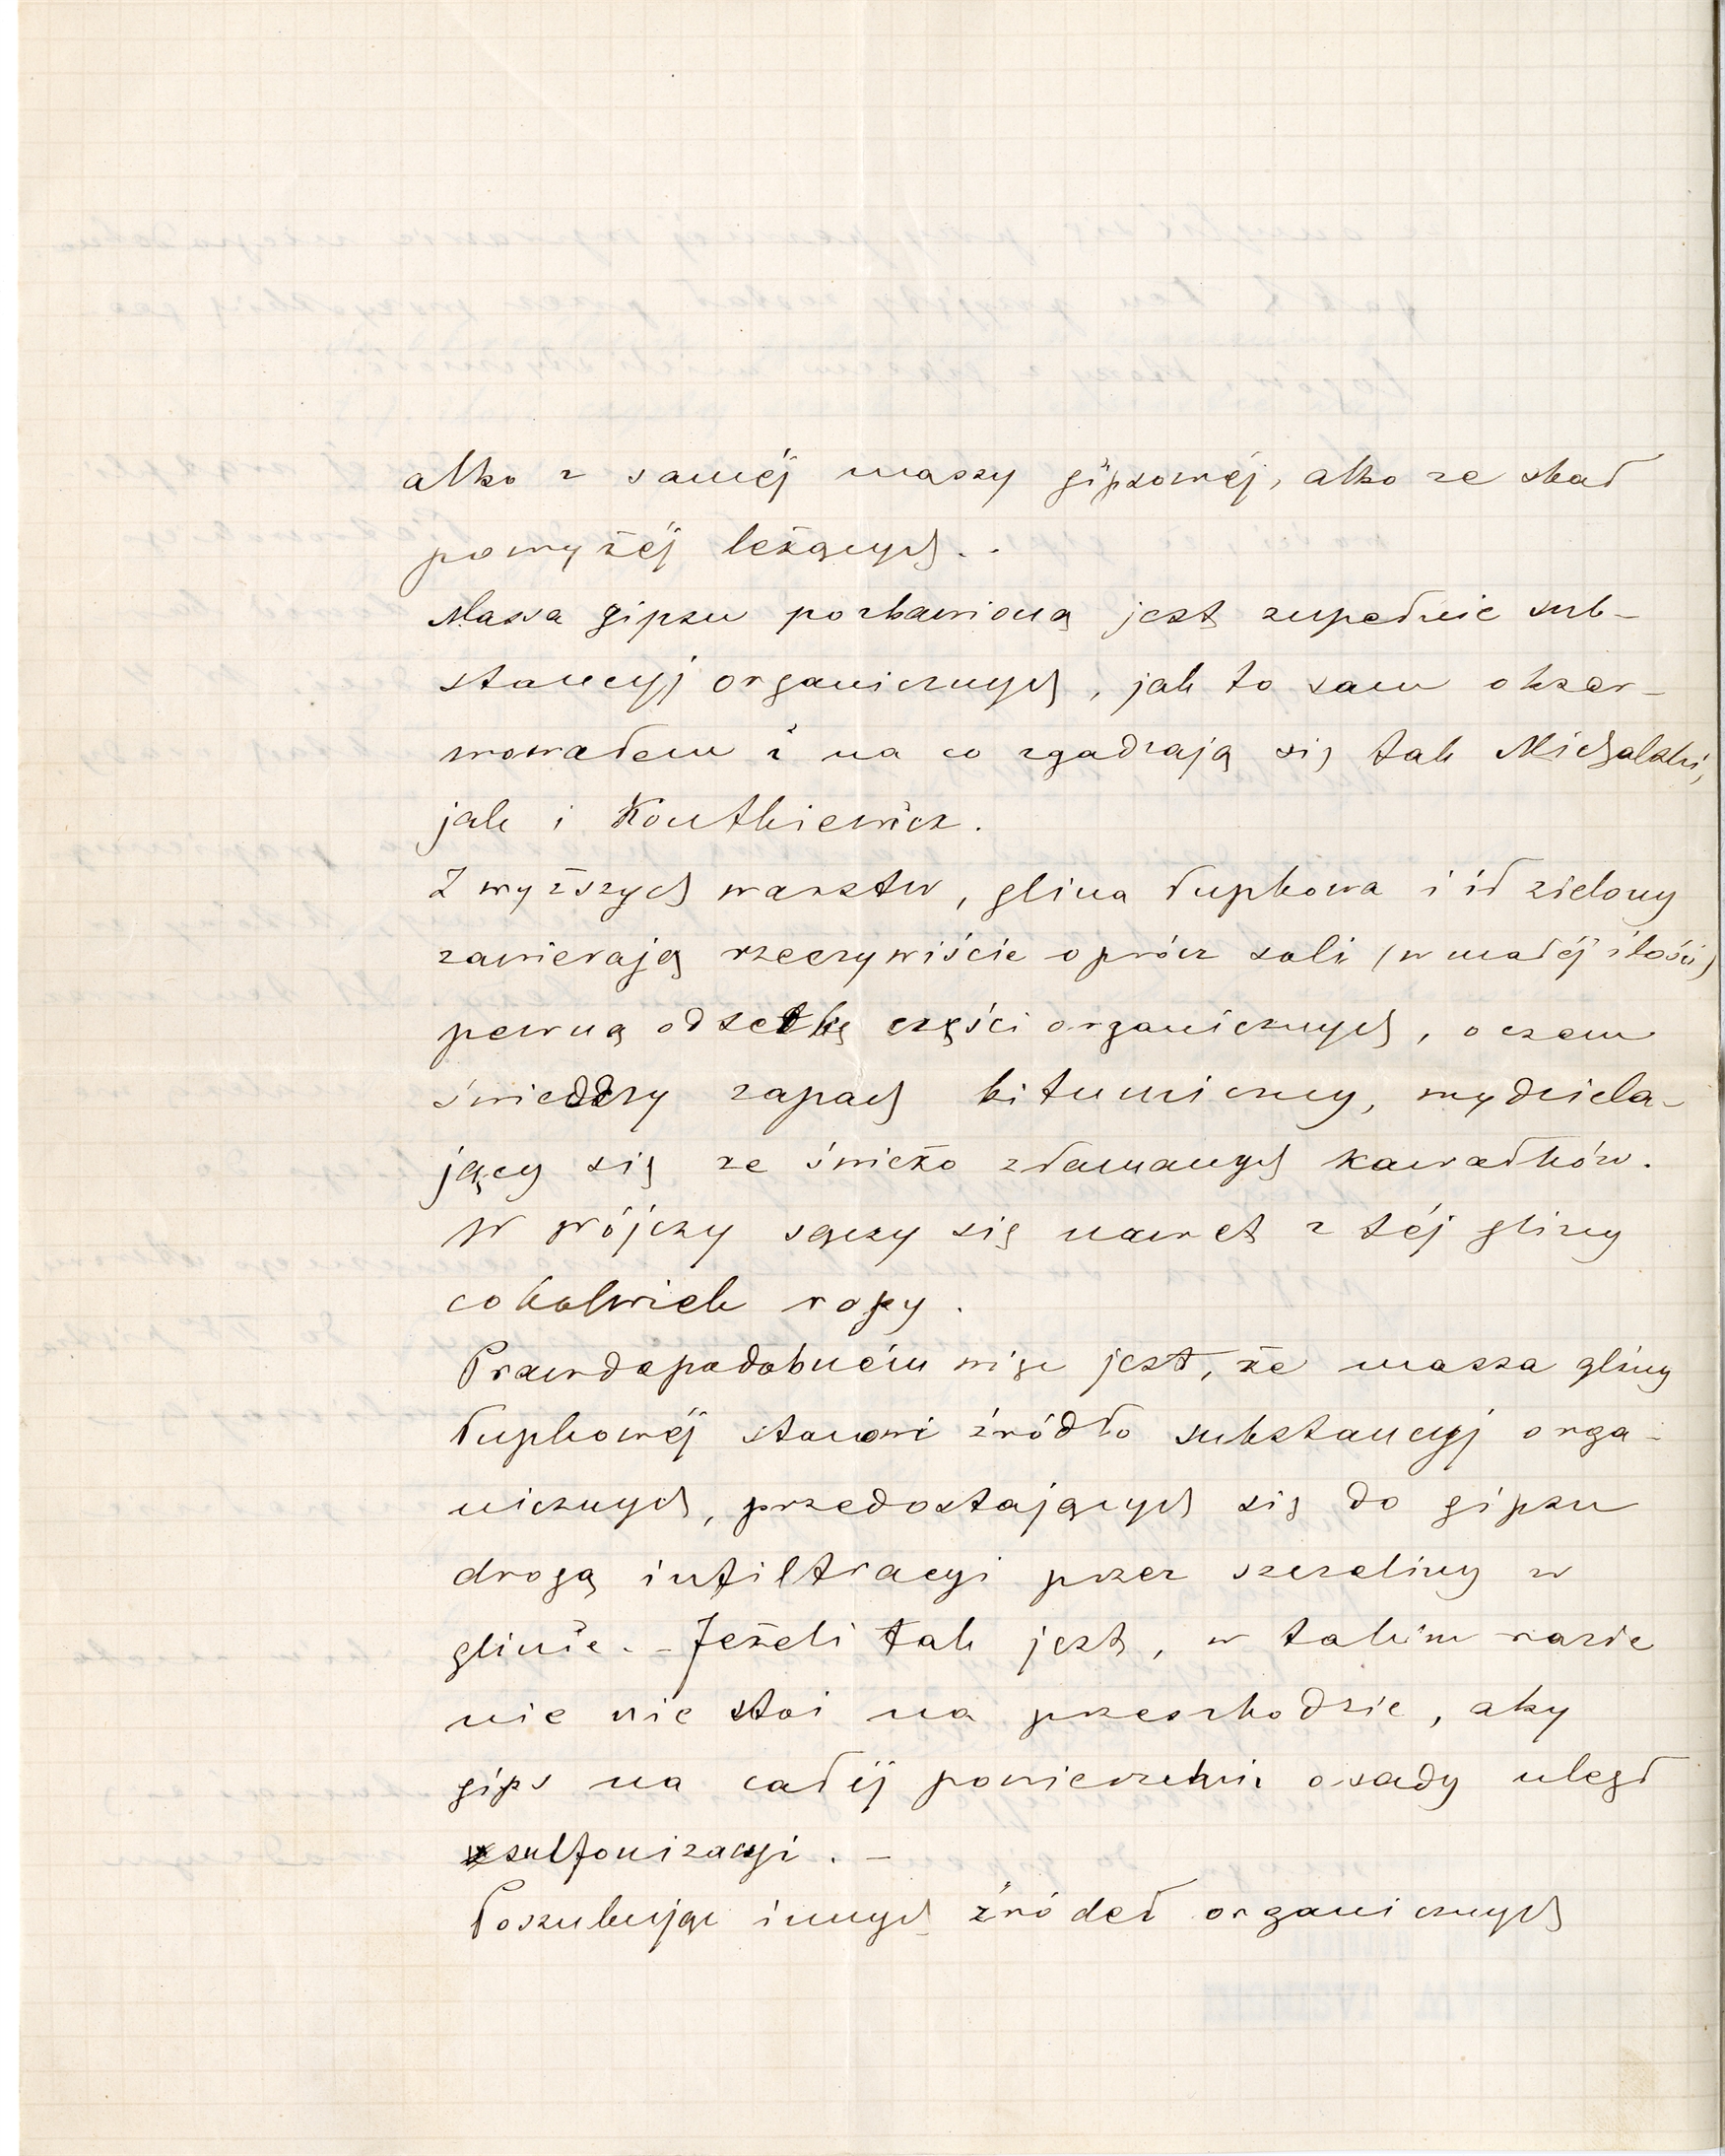 albo z saméj massy gipsowéj, albo ze skał
powyżéj leżących. -
Massa gipsu pozbawioną jest zupełnie sub-
stancyj organicznych, jak to sam obser-
wowałem i na co zgadzają się tak Michalski,
jak i Kontkiewicz.
Z wyższych warstw, glina łupkowa i ił zielony
zawierają rzeczywiście oprócz soli (w małéj ilości)
pewną odsetkę części organicznych, o czem
świedczy zapach bitumiczny, wydziela-
jący się ze świeżo złamanych kawałków.
W Wójczy sączy się nawet z téj gliny
cokolwiek ropy.
Prawdopodobném więc jest, że massa gliny
łupkowéj stanowi źródło substancyj orga-
nicznych, przedostających się do gipsu
drogą infiltracyi przez szczeliny w
glinie. - Jeżeli tak jest, w takim razie
nic nie stoi na przeszkodzie, aby
gips na całéj powierzchni osady uległ
sulfonizacyi. -
Poszukując innych źródeł organicznych